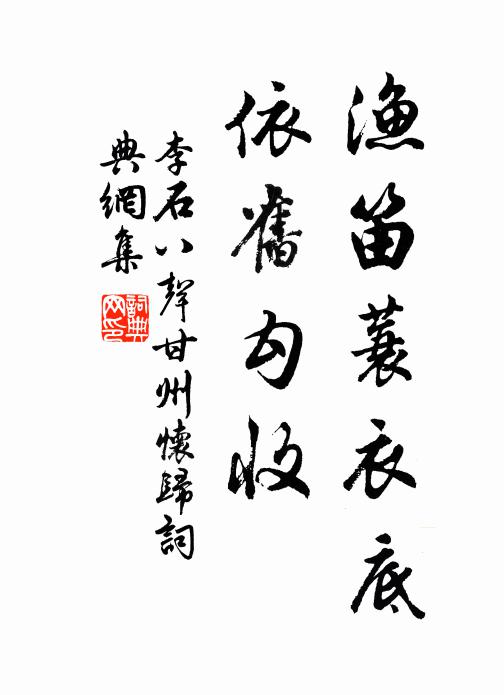 漁笛蓑衣底
依舊勾收
李石八聲甘州懷歸詞
典網集
詞典
网印